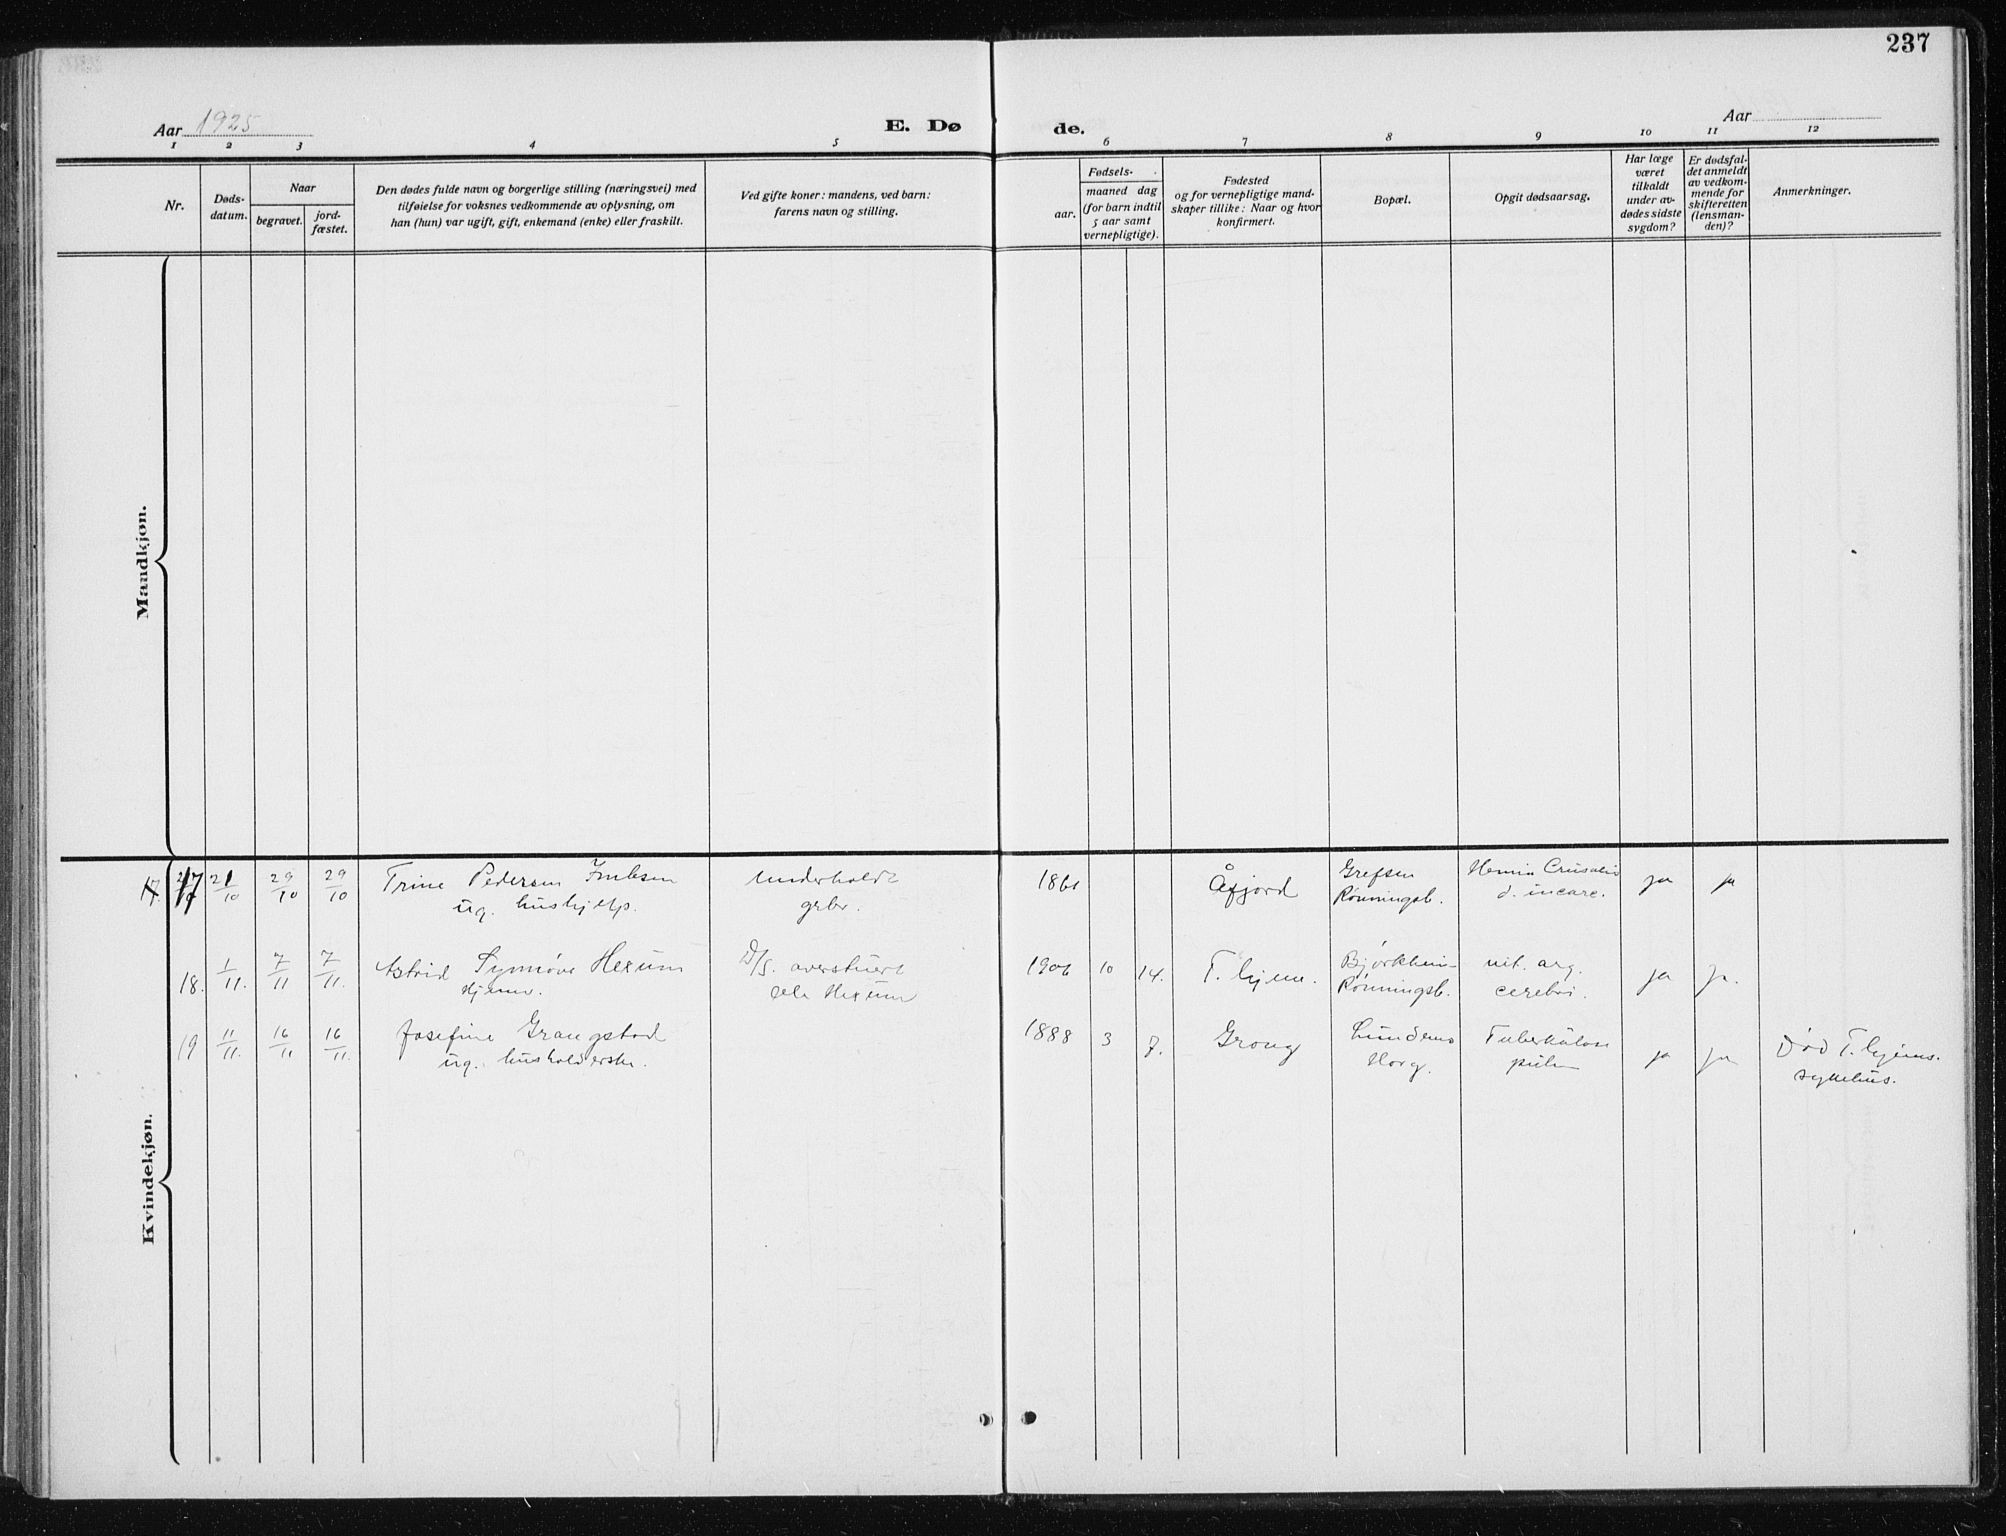 237
Aar 1925
E. Dø
de.
Aar
1 2 3 4 5 6 7 8 9 10 11 12
Nr.
Døds-
datum.
Naar
begravet.
jord-
fæstet.
Den dødes fulde navn og borgerlige stilling (næringsvei) med
tilføielse for voksnes vedkommende av oplysning, om
han (hun) var ugift, gift, enkemand (enke) eller fraskilt.
Ved gifte koner: mandens, ved barn:
farens navn og stilling.
Fødsels-
aar.
maaned dag
(for barn indtil
5 aar samt
vernepligtige).
Fødested
og for vernepligtige mand-
skaper tillike: Naar og hvor
konfirmert.
Bopæl.
Opgit dødsaarsag.
Har læge
været
tilkaldt
under av-
dødes sidste
sygdom?
Er dødsfal-
det anmeldt
av vedkom-
mende for
skifteretten
(lensman-
den)?
Anmerkninger.
Mandkjøn.
Kvindekjøn.
17 21/10 29/10 29/10 Trine Pedersen
ug. hushjelp.
underholdt
1861 Åfjord
Grefsen
Rønningsb.
ja ja
18. 1/11. 7/11 7/11. Astrid Synnøve Hexum
hjemme.
D/s. overstuert
Ole Hexum
1906 10 14. T. hjem.
Bjørkheim
Rønningsb.
vit. org.
cerebri.
ja ja.
19 11/11. 16/11 16/11. Josefine Grangstad
ug. husholderske.
1888 3 7. Grong
Lundemo
Horg.
Tuberkulose
pulm
ja ja
Død T. hjems.
sykehus.